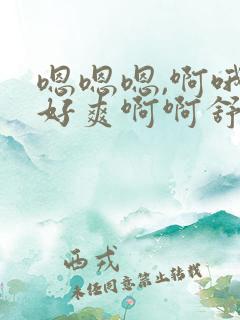 嗯嗯嗯,啊哦
好爽啊啊舒
西戎
未经同意禁止转载